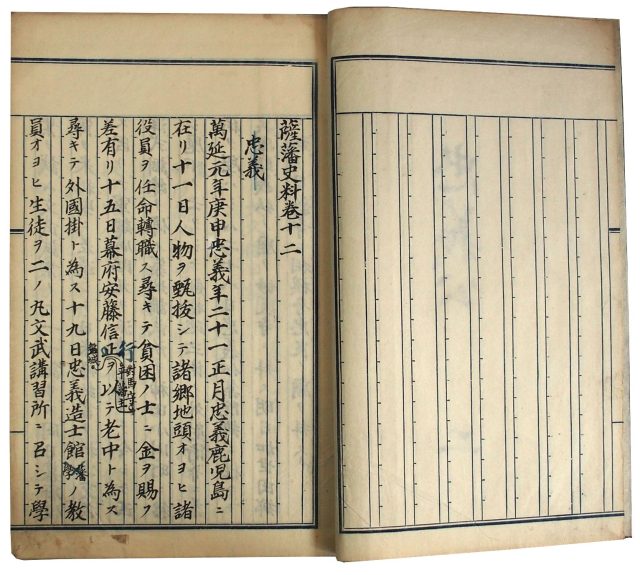 薩藩史料巻十二
忠義
萬延元年庚申忠義年二十一正月忠義鹿児島ニ
在リ十一日人物ヲ甄抜シテ諸郷地頭オヨヒ諸
役員ヲ任命轉職ス尋キテ貧困ノ士ニ金ヲ賜フ
差有リ十五日幕府安藤信正ヲ以テ老中ト為ス
行
對馬守
磐城
尋キテ外國掛ト為ス十九日忠義造士館ノ教
藩學
員オヨヒ生徒ヲ二ノ丸文武講習所ニ召シテ學